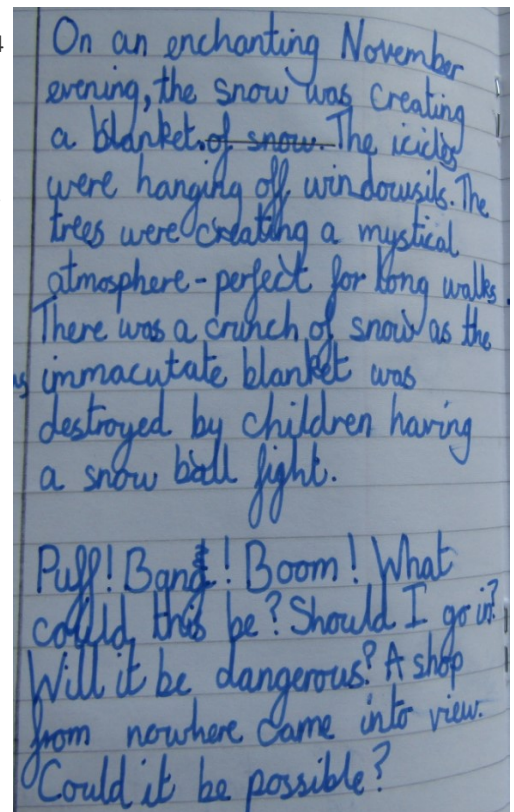 On an enchanting November
evening, the snow was creating
a blanket. of snow. The icicles
were hanging off windowsils. The
trees were creating a mystical
atmosphere - perfect for long walks.
There was a crunch of snow as the
immacutate blanket was
destroyed by children having
a snow ball fight.
Puff! Bang! Boom! What
could this be? Should I go in?
Will it be dangerous? A shop
from nowhere came into view.
Could it be possible?